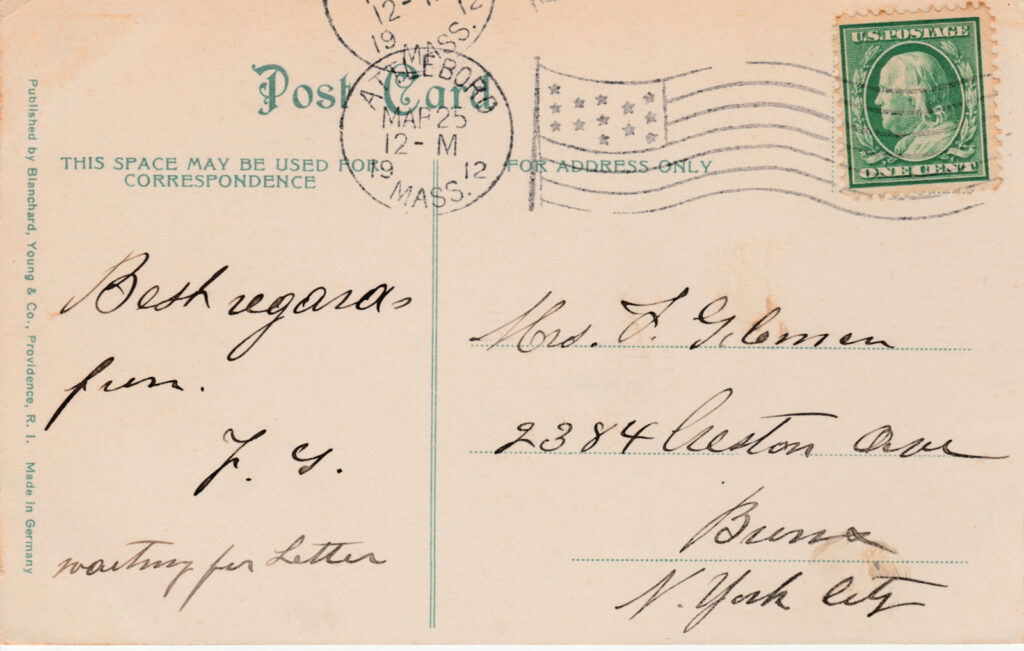 12-
12
19
MASS.
Post Card
ATTLEBORO
MAR 25
12-M
19 12
MASS.
U.S. POSTAGE
ONE CENT
THIS SPACE MAY BE USED FOR
CORRESPONDENCE
FOR ADDRESS ONLY
Best regards
from.
F. G.
waiting for Letter
Mrs. F. Gilman
2384 Creston Ave
Bronx
N. York City
Published by Blanchard, Young & Co., Providence, R. I. Made in Germany